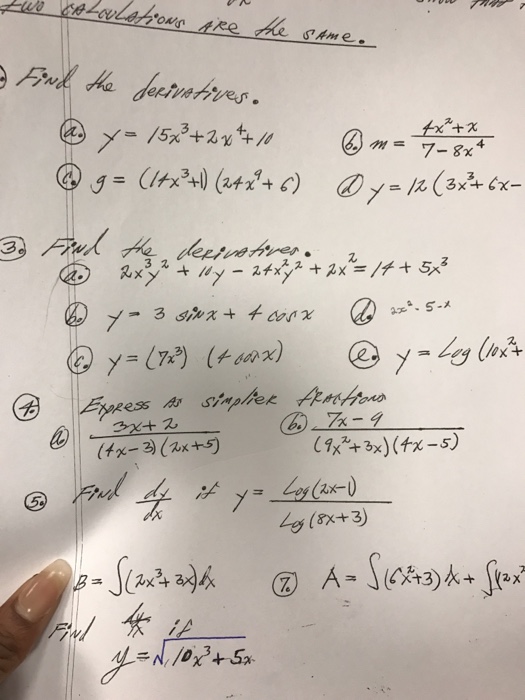 TWO CALCULATIONS ARE the SAME.
Find the derivatives.
a. y = 15x³+2x⁴+10
b. m = (4x²+x)/(7-8x⁴)
c. g = (14x³+1) (24x⁹+6)
d y = 12 (3x³+6x-
3. Find the derivatives.
a. 2x³y² + 10y - 24x²y² + 2x² = 14 + 5x³
b. y = 3 sinx + 4 cosx
d.
c. y = (7x³) (4 cosx)
e. y = Log (10x²+
4. EXPRESS AS simplier fractions
a. (3x+2)/((4x-3)(2x+5))
b. (7x-9)/((9x²+3x)(4x-5))
5. Find dy/dx if y = Log(2x-1)/Log(8x+3)
B = ∫(2x³+3x)dx
7. A = ∫(6x²+3) dx + ∫(2x²
Find dy/dx if
y = √10x³+5x